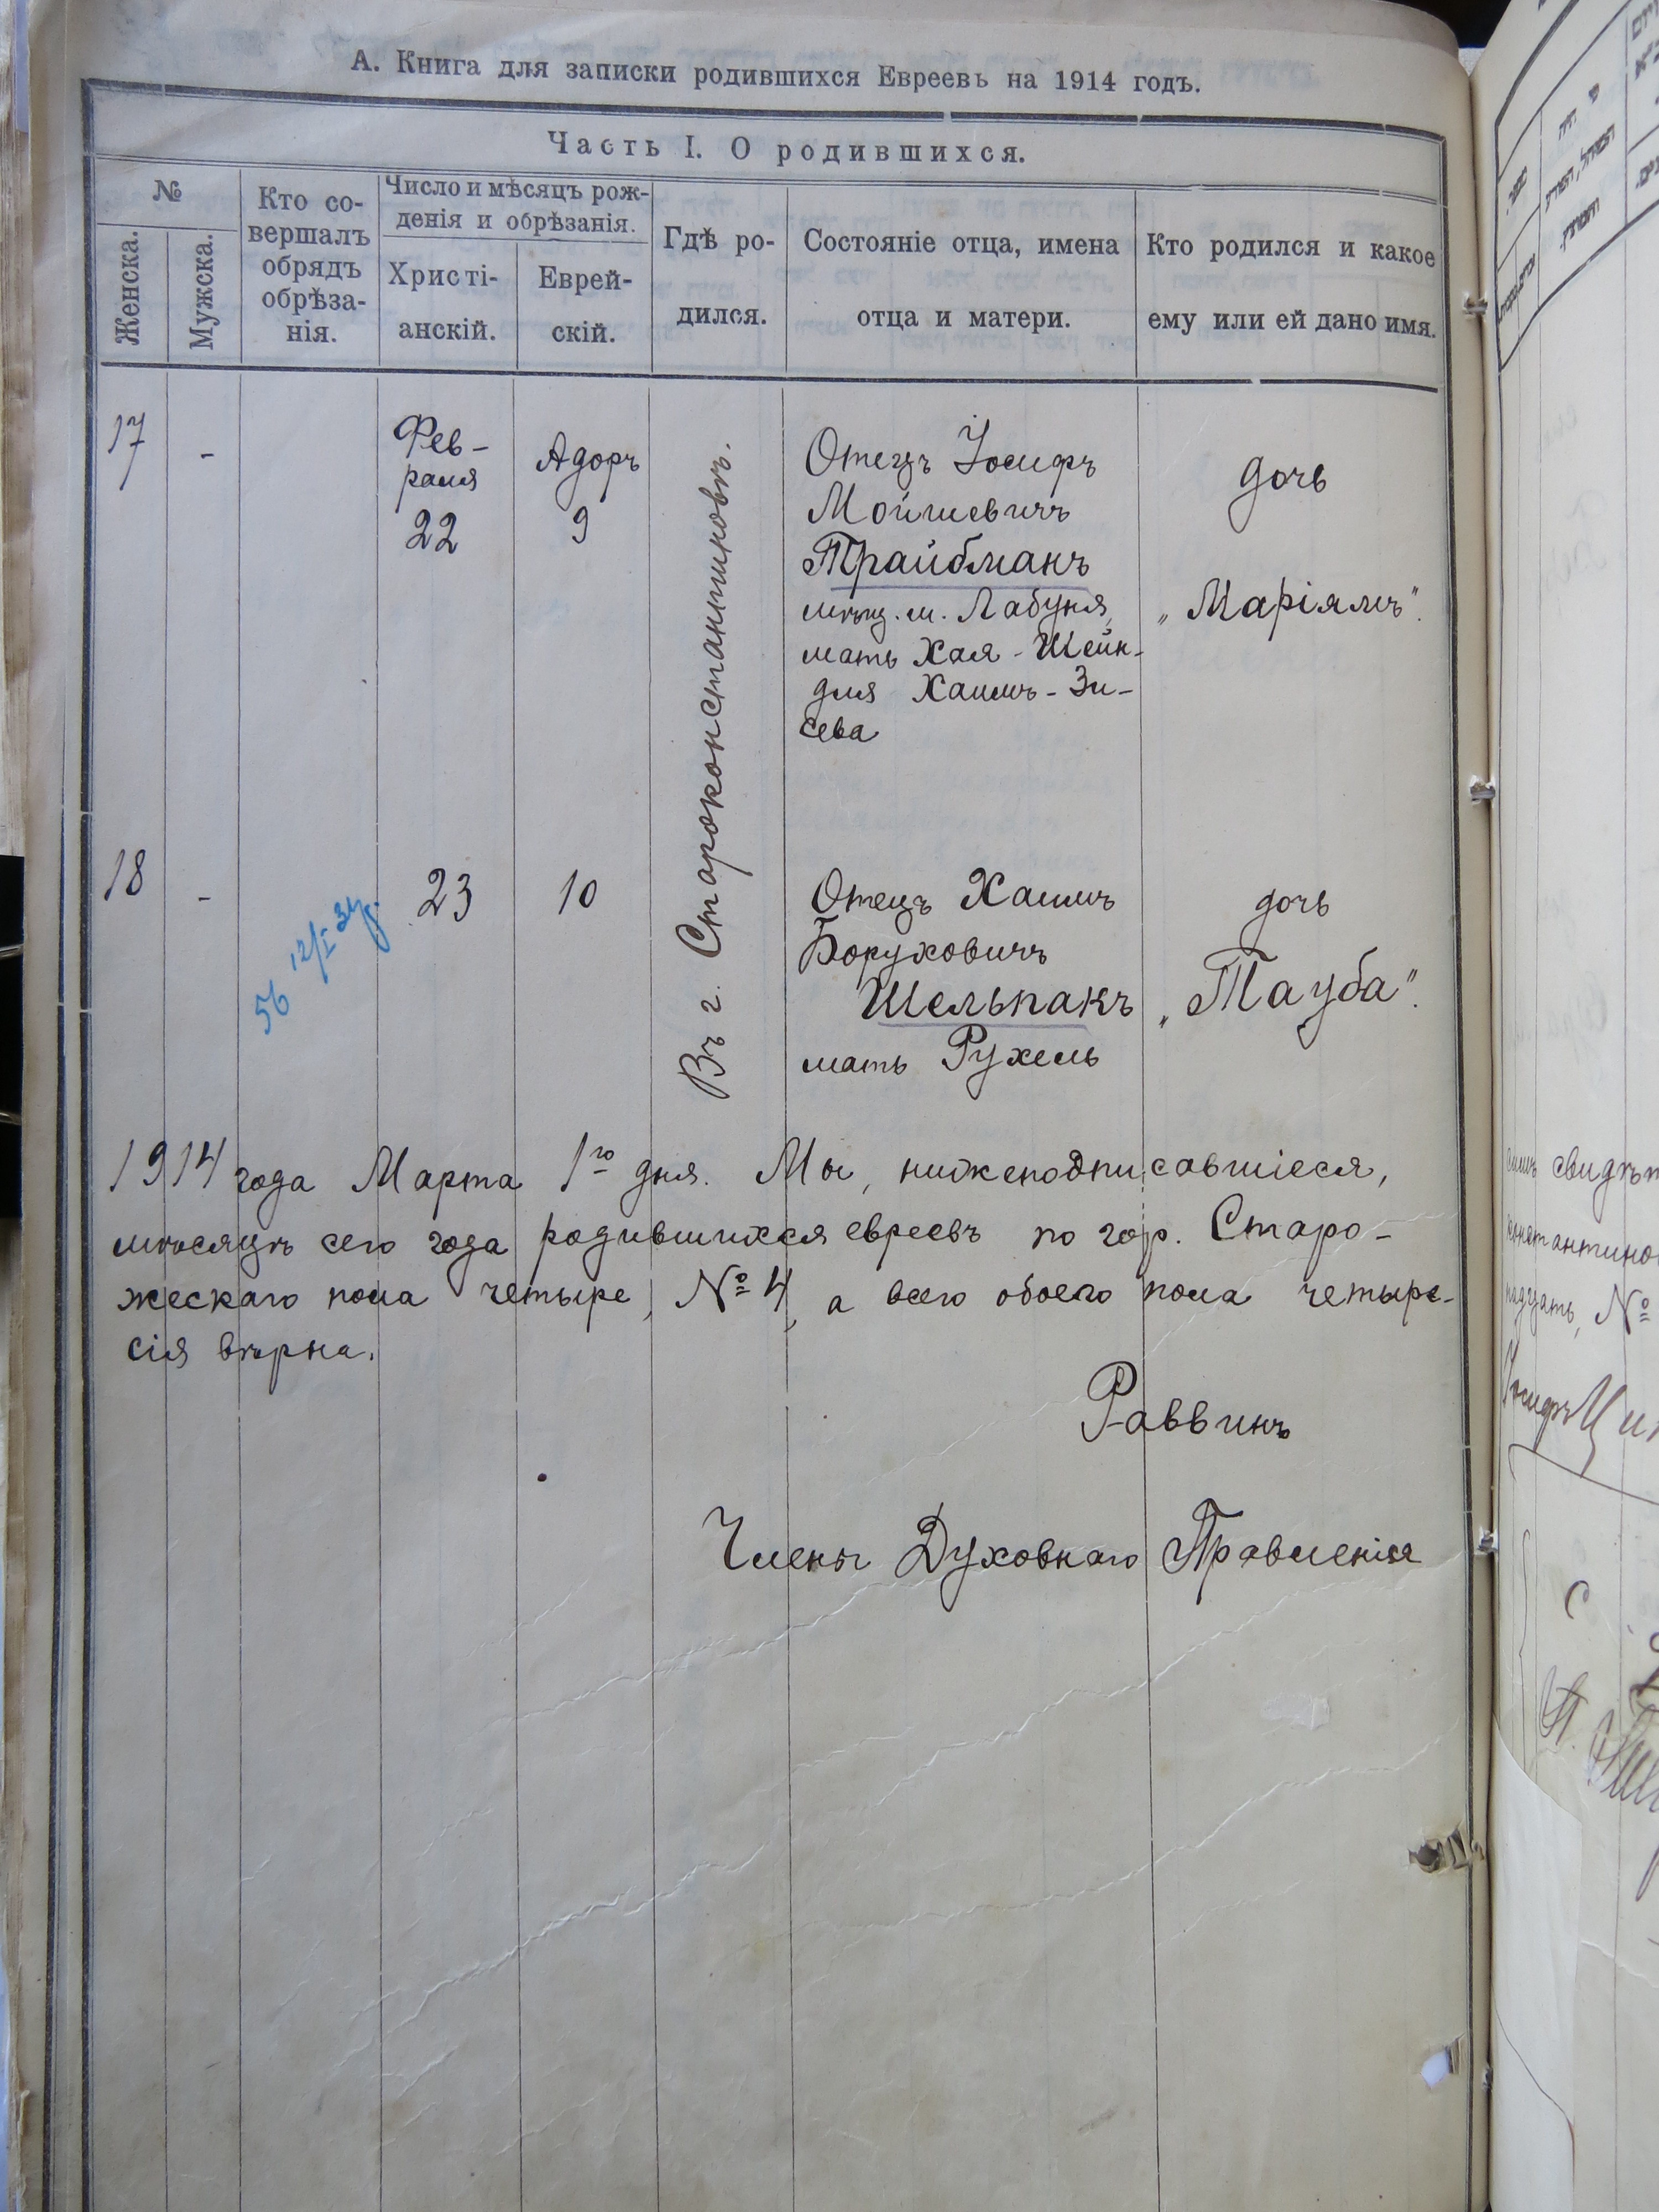 А. Книга для записки родившихся Евреевъ на 1914 годъ.
Часть I. О родившихся.
№
Женска.
Мужска.
Кто со-
вершалъ
обрядъ
обрѣза-
нія.
Число и мѣсяцъ рож-
денія и обрѣзанія.
Христі-
анскій.
Еврей-
скій.
Гдѣ ро-
дился.
Состояніе отца, имена
отца и матери.
Кто родился и какое
ему или ей дано имя.
17
-
Фев-
раля
22
Адоръ
9
Въ г. Староконстантиновѣ.
Отецъ Іосифъ
Мойшевичъ
Трайбманъ
мѣщ. м. Лабуня,
мать Хая-Шейн-
для Хаимъ-Зи-
сева
дочь
„Маріямъ".
18
-
56 12/I 34 г.
23
10
Отецъ Хаимъ
Боруховичъ
Шельпакъ
мать Рухель
дочь
„Тауба".
1914 года Марта 1го дня. Мы, нижеподписавшіеся,
мѣсяцъ сего года родившихся евреевъ по гор. Старо-
жескаго пола четыре, № 4, а всего обоего пола четыре-
сія вѣрна.
Раввинъ
Члены Духовнаго Правленія
свидѣт
константино
надцать, №
Іосифъ